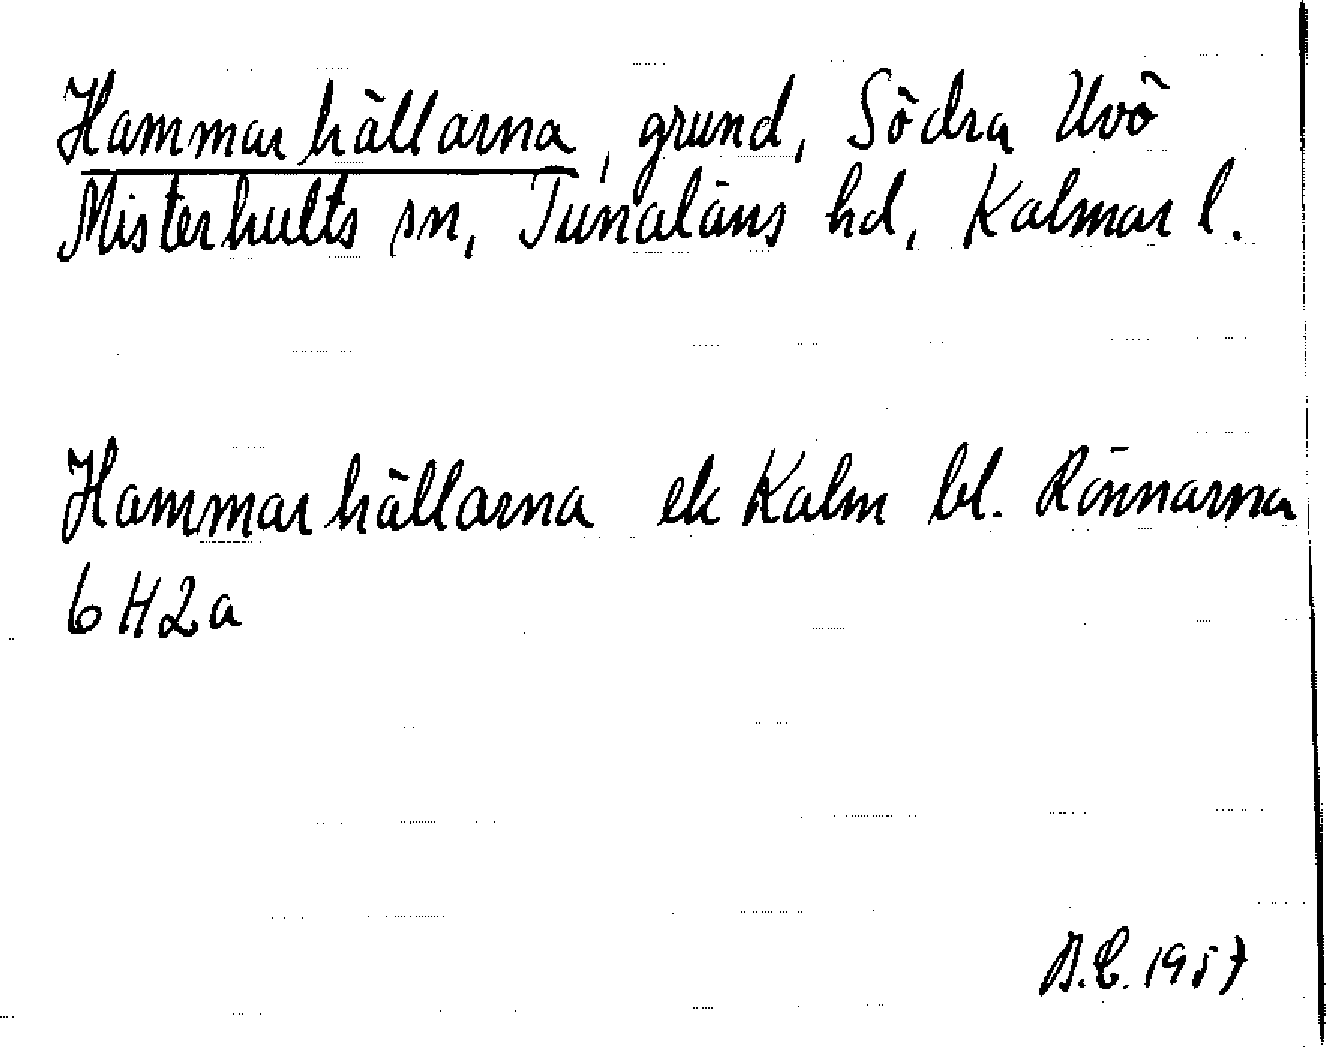 Hammarhällarna, grund, Södra Uvö
Misterhults sn, Tunaläns hd, Kalmar l.
Hammarhällarna ek Kalm bl. Rönnarna
6H2a
B.E. 1957